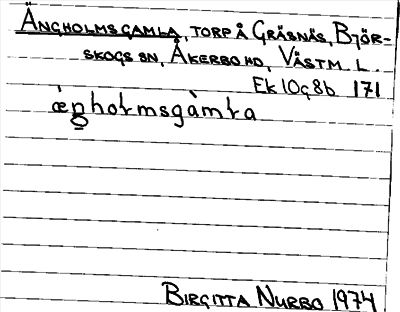 ÄNGHOLMSGAMLA, TORP Å GRÄSNÄS, BJÖR-
SKOGS SN, ÅKERBO HD, VÄSTM. L.
Ek 10g8b 171
æ̀ŋhoɫmsgàmɫa
BIRGITTA NURBO 1974